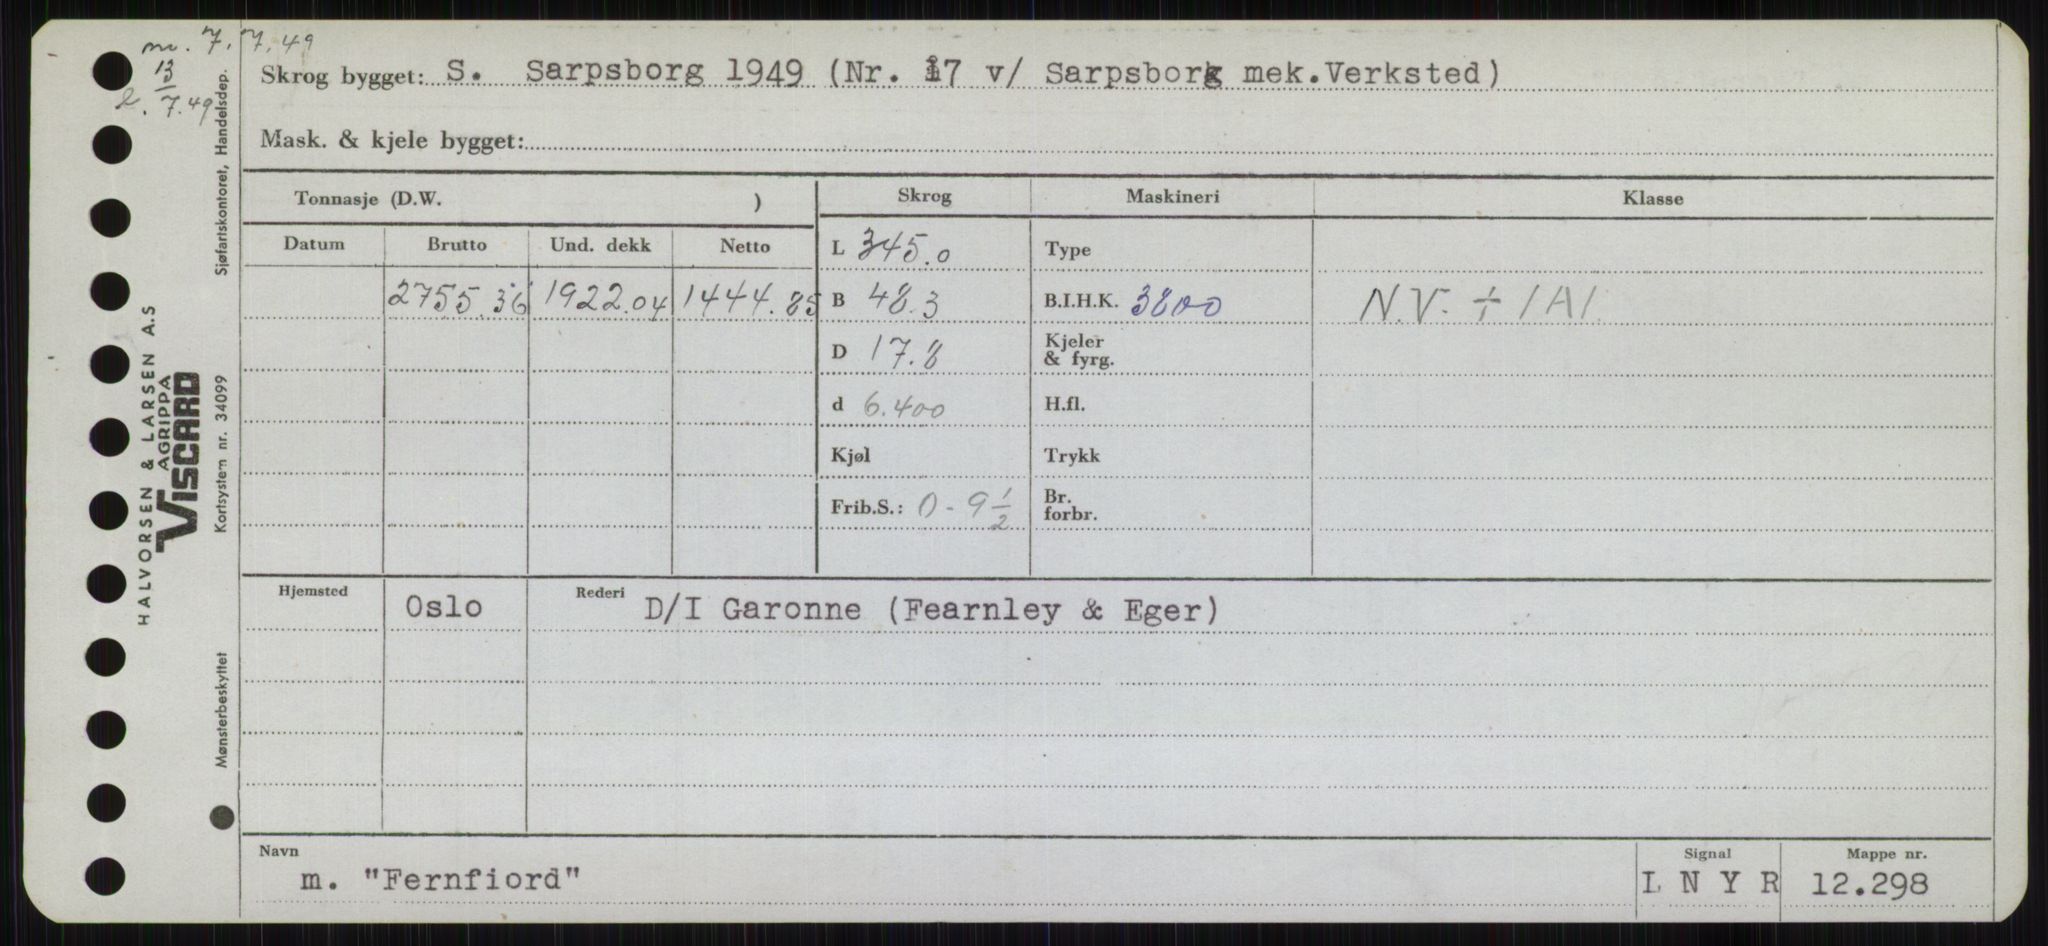 m. 7.7.49
13
2. 7.49
Skrog bygget: S. Sarpsborg 1949 (Nr. 17 v/ Sarpsborg mek.Verksted)
Mask. & kjele bygget:
Tonnasje (D.W. )
Skrog Maskineri Klasse
Datum Brutto Und. dekk Netto
L 345.0 Type
2755.36 1922.04 1444.85
B 48.3 B.I.H.K. 3800 N.V. ÷ 1A1
D 17.8 Kjeler
& fyrg.
d 6.400 H.fl.
Kjøl Trykk
Frib.S.: 0 - 9 1/2 Br.
forbr.
Hjemsted Oslo Rederi D/I Garonne (Fearnley & Eger)
Navn
m. "Fernfiord"
Signal
L N Y R
Mappe nr.
12.298
Sjøfartskontoret, Handelsdep.
HALVORSEN & LARSEN A.S
AGRIPPA
VISCARD
Kortsystem nr. 34099
Mønsterbeskyttet